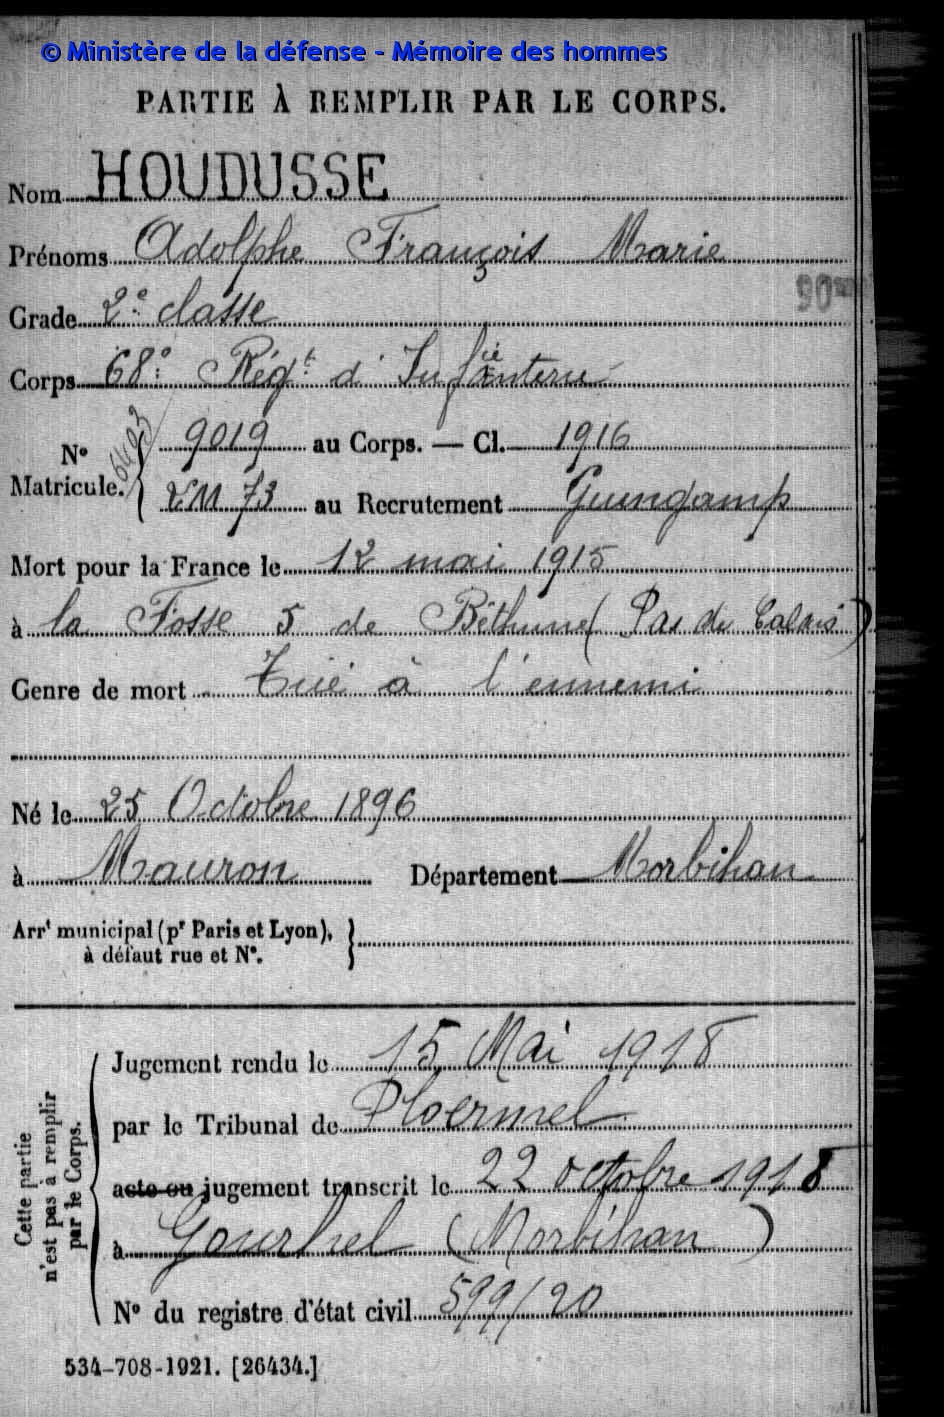 © Ministère de la défense - Mémoire des hommes
PARTIE À REMPLIR PAR LE CORPS.
Nom HOUDUSSE
Prénoms Adolphe François Marie
90
Grade 2e classe
Corps 68e Régt d'Infanterie
N° Matricule. 9019 au Corps. — Cl. 1916
73 au Recrutement Guingamp
Mort pour la France le 12 mai 1915
à la Fosse 5 de Béthune (Pas de Calais)
Genre de mort Tué à l'ennemi
Né le 25 Octobre 1896
à Mauron Département Morbihan
Arrt municipal (pr Paris et Lyon),
à défaut rue et N°.
Cette partie
n'est pas à remplir
par le Corps.
Jugement rendu le 15 Mai 1918
par le Tribunal de Ploermel
acte ou jugement transcrit le 22 octobre 1918
à Gourhel (Morbihan)
N° du registre d'état civil 599/20
534-708-1921. [26434.]